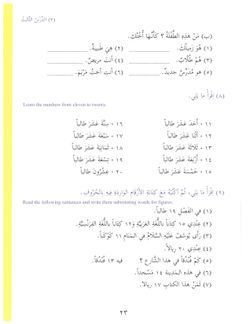 (٣) الدَّرْسُ الثَّالِثُ
(ب) مَنْ هَذِهِ الطِّفْلَةُ ؟ كَأَنَّهَا أُخْتُكَ.
(١) هُوَ زَمِيلُكَ.
(٢) هِيَ طَبِيبَةٌ.
(٣) هُمْ طُلَّابٌ.
(٤) أَنْتَ مَرِيضٌ.
(٥) هُوَ مُدَرِّسٌ جَدِيدٌ.
(٦) أَنْتِ أُخْتُ مَرْيَمَ.
(٨) اِقْرَأْ مَا يَلِي.
Learn the numbers from eleven to twenty.
١١ - أَحَدَ عَشَرَ طَالِباً
١٦ - سِتَّةَ عَشَرَ طَالِباً
١٢ - اِثْنَا عَشَرَ طَالِباً
١٧ - سَبْعَةَ عَشَرَ طَالِباً
١٣ - ثَلَاثَةَ عَشَرَ طَالِباً
١٨ - ثَمَانِيَةَ عَشَرَ طَالِباً
١٤ - أَرْبَعَةَ عَشَرَ طَالِباً
١٩ - تِسْعَةَ عَشَرَ طَالِباً
١٥ - خَمْسَةَ عَشَرَ طَالِباً
٢٠ - عِشْرُونَ طَالِباً
(٩) اِقْرَأْ مَا يَلِي، ثُمَّ اكْتُبْهُ مَعَ كِتَابَةِ الأَرْقَامِ الوَارِدَةِ فِيهِ بِالْحُرُوفِ.
Read the following sentences and write them substituting words for figures.
(١) فِي الفَصْلِ ١٩ طَالِباً.
(٢) عِنْدِي ١٥ كِتَاباً بِاللُّغَةِ العَرَبِيَّةِ و١٢ كِتَاباً بِاللُّغَةِ الفِرَنْسِيَّةِ.
(٣) رَأَى يُوسُفُ عَلَيْهِ السَّلَامُ فِي المَنَامِ ١١ كَوْكَباً.
(٤) عِنْدِي ٢٠ رِيَالاً.
(٥) كَمْ فُنْدُقاً فِي هذا الشَّارِعِ ؟ فِيهِ ١٣ فُنْدُقاً.
(٦) فِي هَذِهِ المَدِينَةِ ١٤ مَسْجِداً.
(٧) ثَمَنُ هَذَا الكِتَابِ ١٧ رِيَالاً.
٢٣